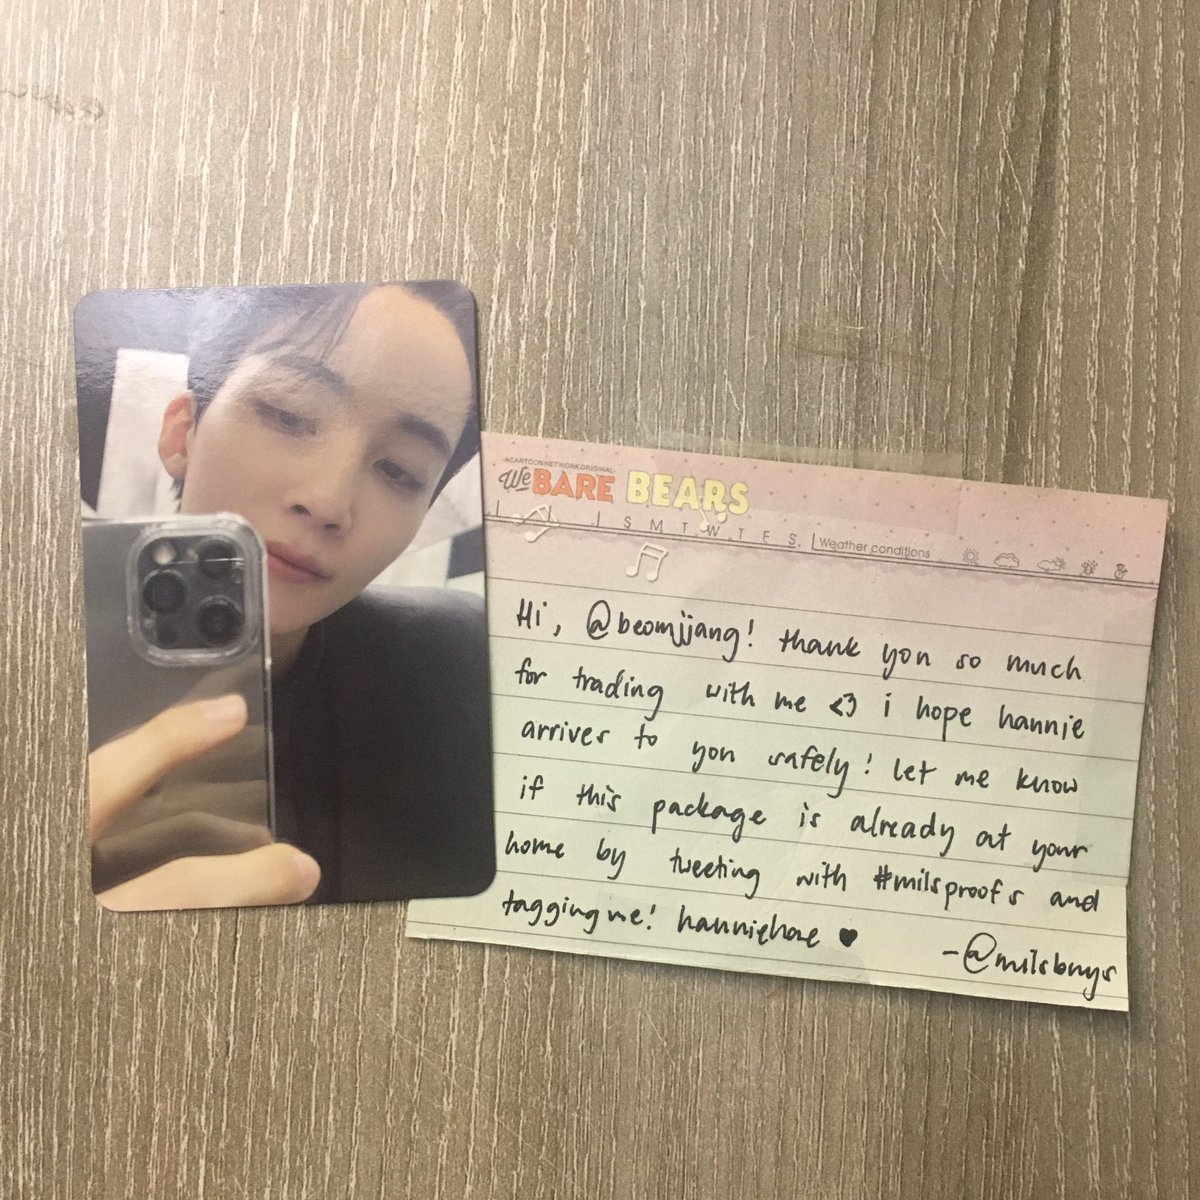 A CARTOON NETWORK ORIGINAL
We BARE BEARS
S M T W T F S Weather conditions
Hi, @beomjjang! thank you so much
for trading with me <3 i hope hannie
arrives to you safely! let me know
if this package is already at your
home by tweeting with #milsproofs and
tagging me! hanniehae ♥
-@milsbuys